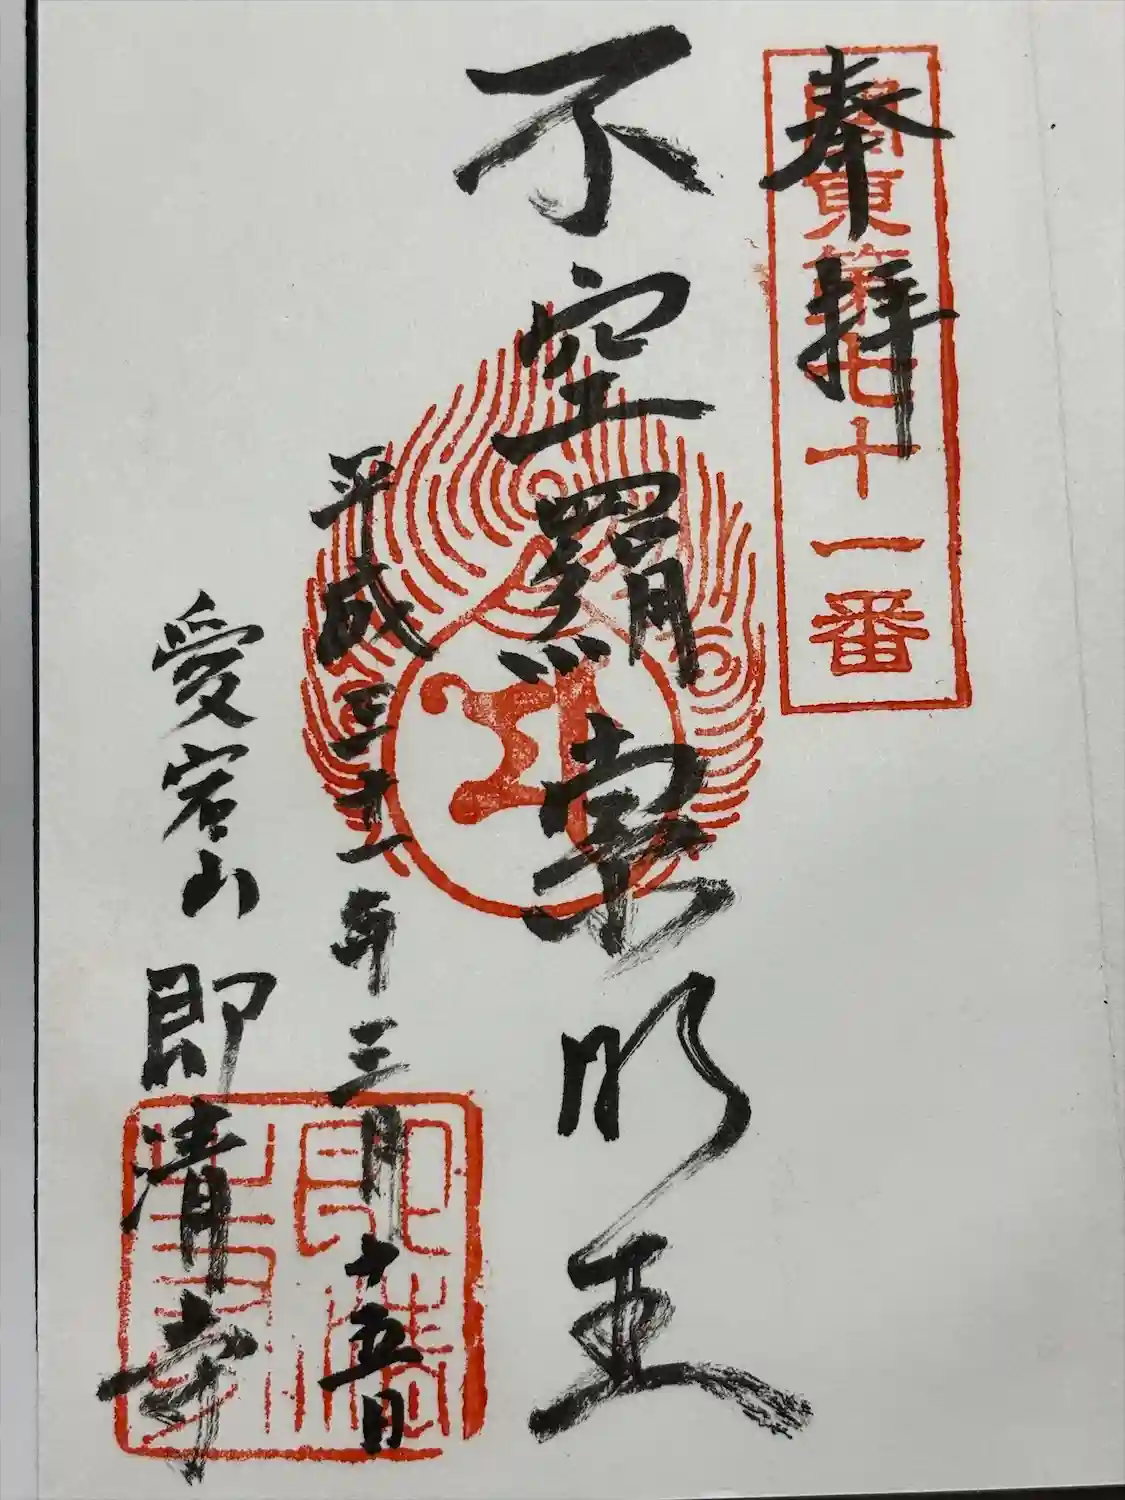 奉拝
關東第七十一番
不空羂索明王
平成三十一年三月十五日
愛宕山 即清寺